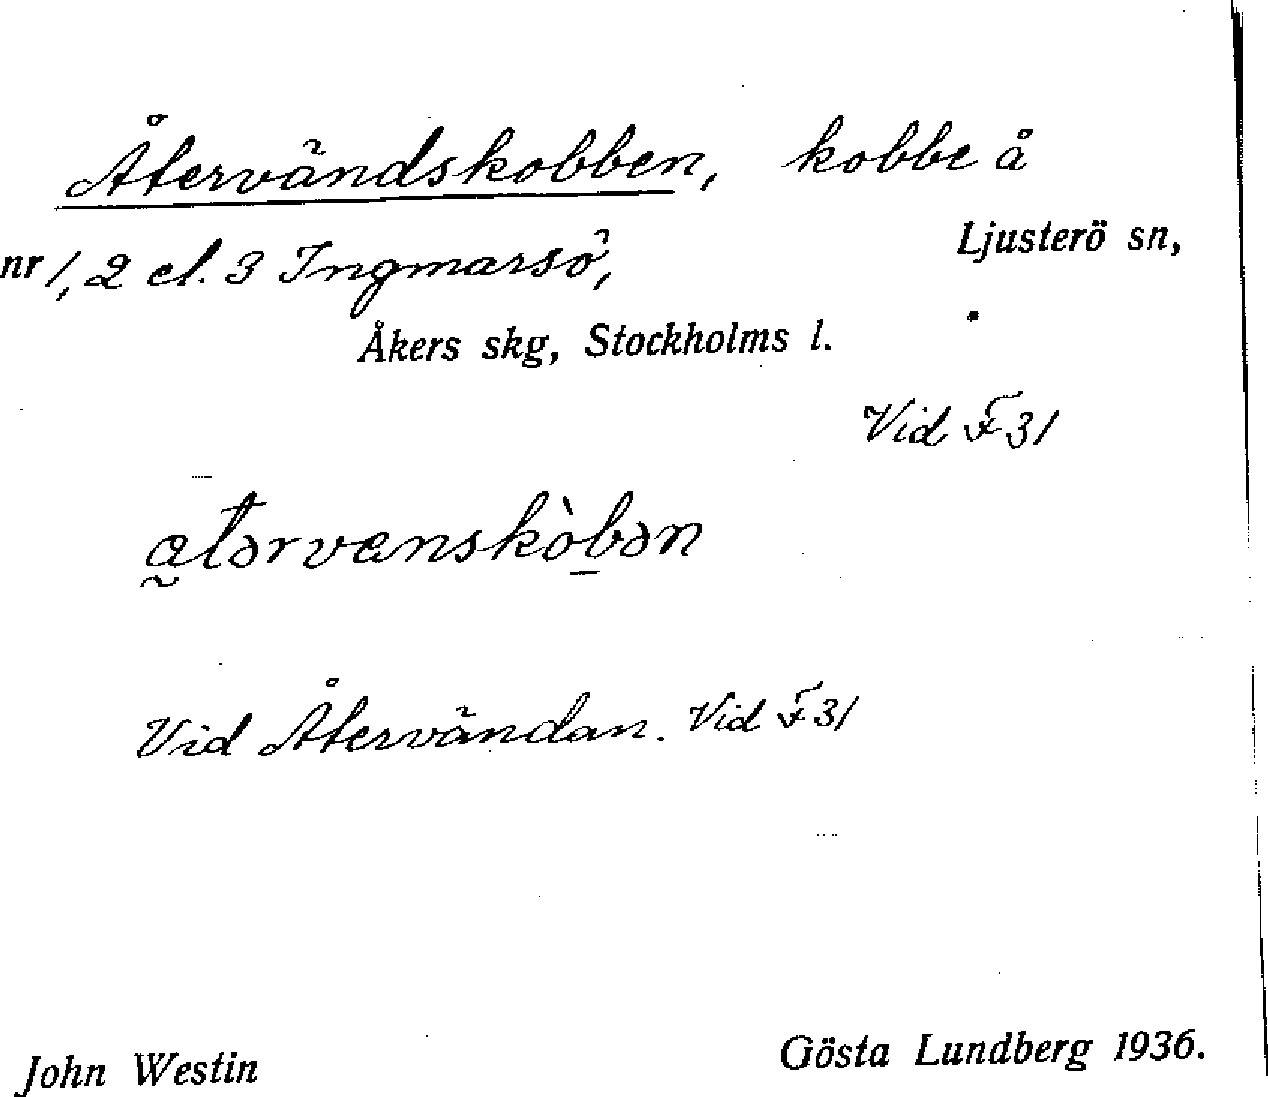 Återvändskobben, kobbe å
Ljusterö sn,
nr 1, 2 el. 3 Ingmarsö,
Åkers skg, Stockholms l.
Vid F31
atərvanskòbən
Vid Återvändan. Vid F31
John Westin
Gösta Lundberg 1936.